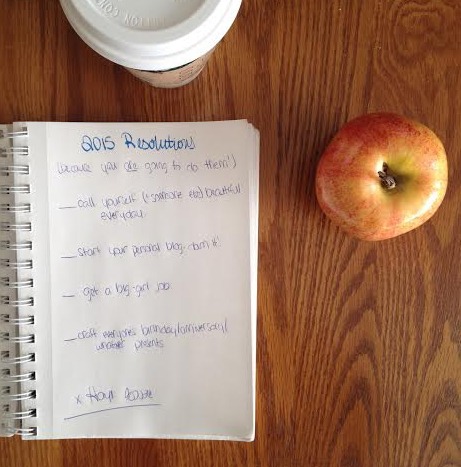 2015 Resolutions
(because you are going to do them!)
_ call yourself (+ someone else) beautiful
everyday.
_ start your blog. damn it!
_ get a big-girl job
_ craft everyones birthday/anniversary/
whatever presents
x